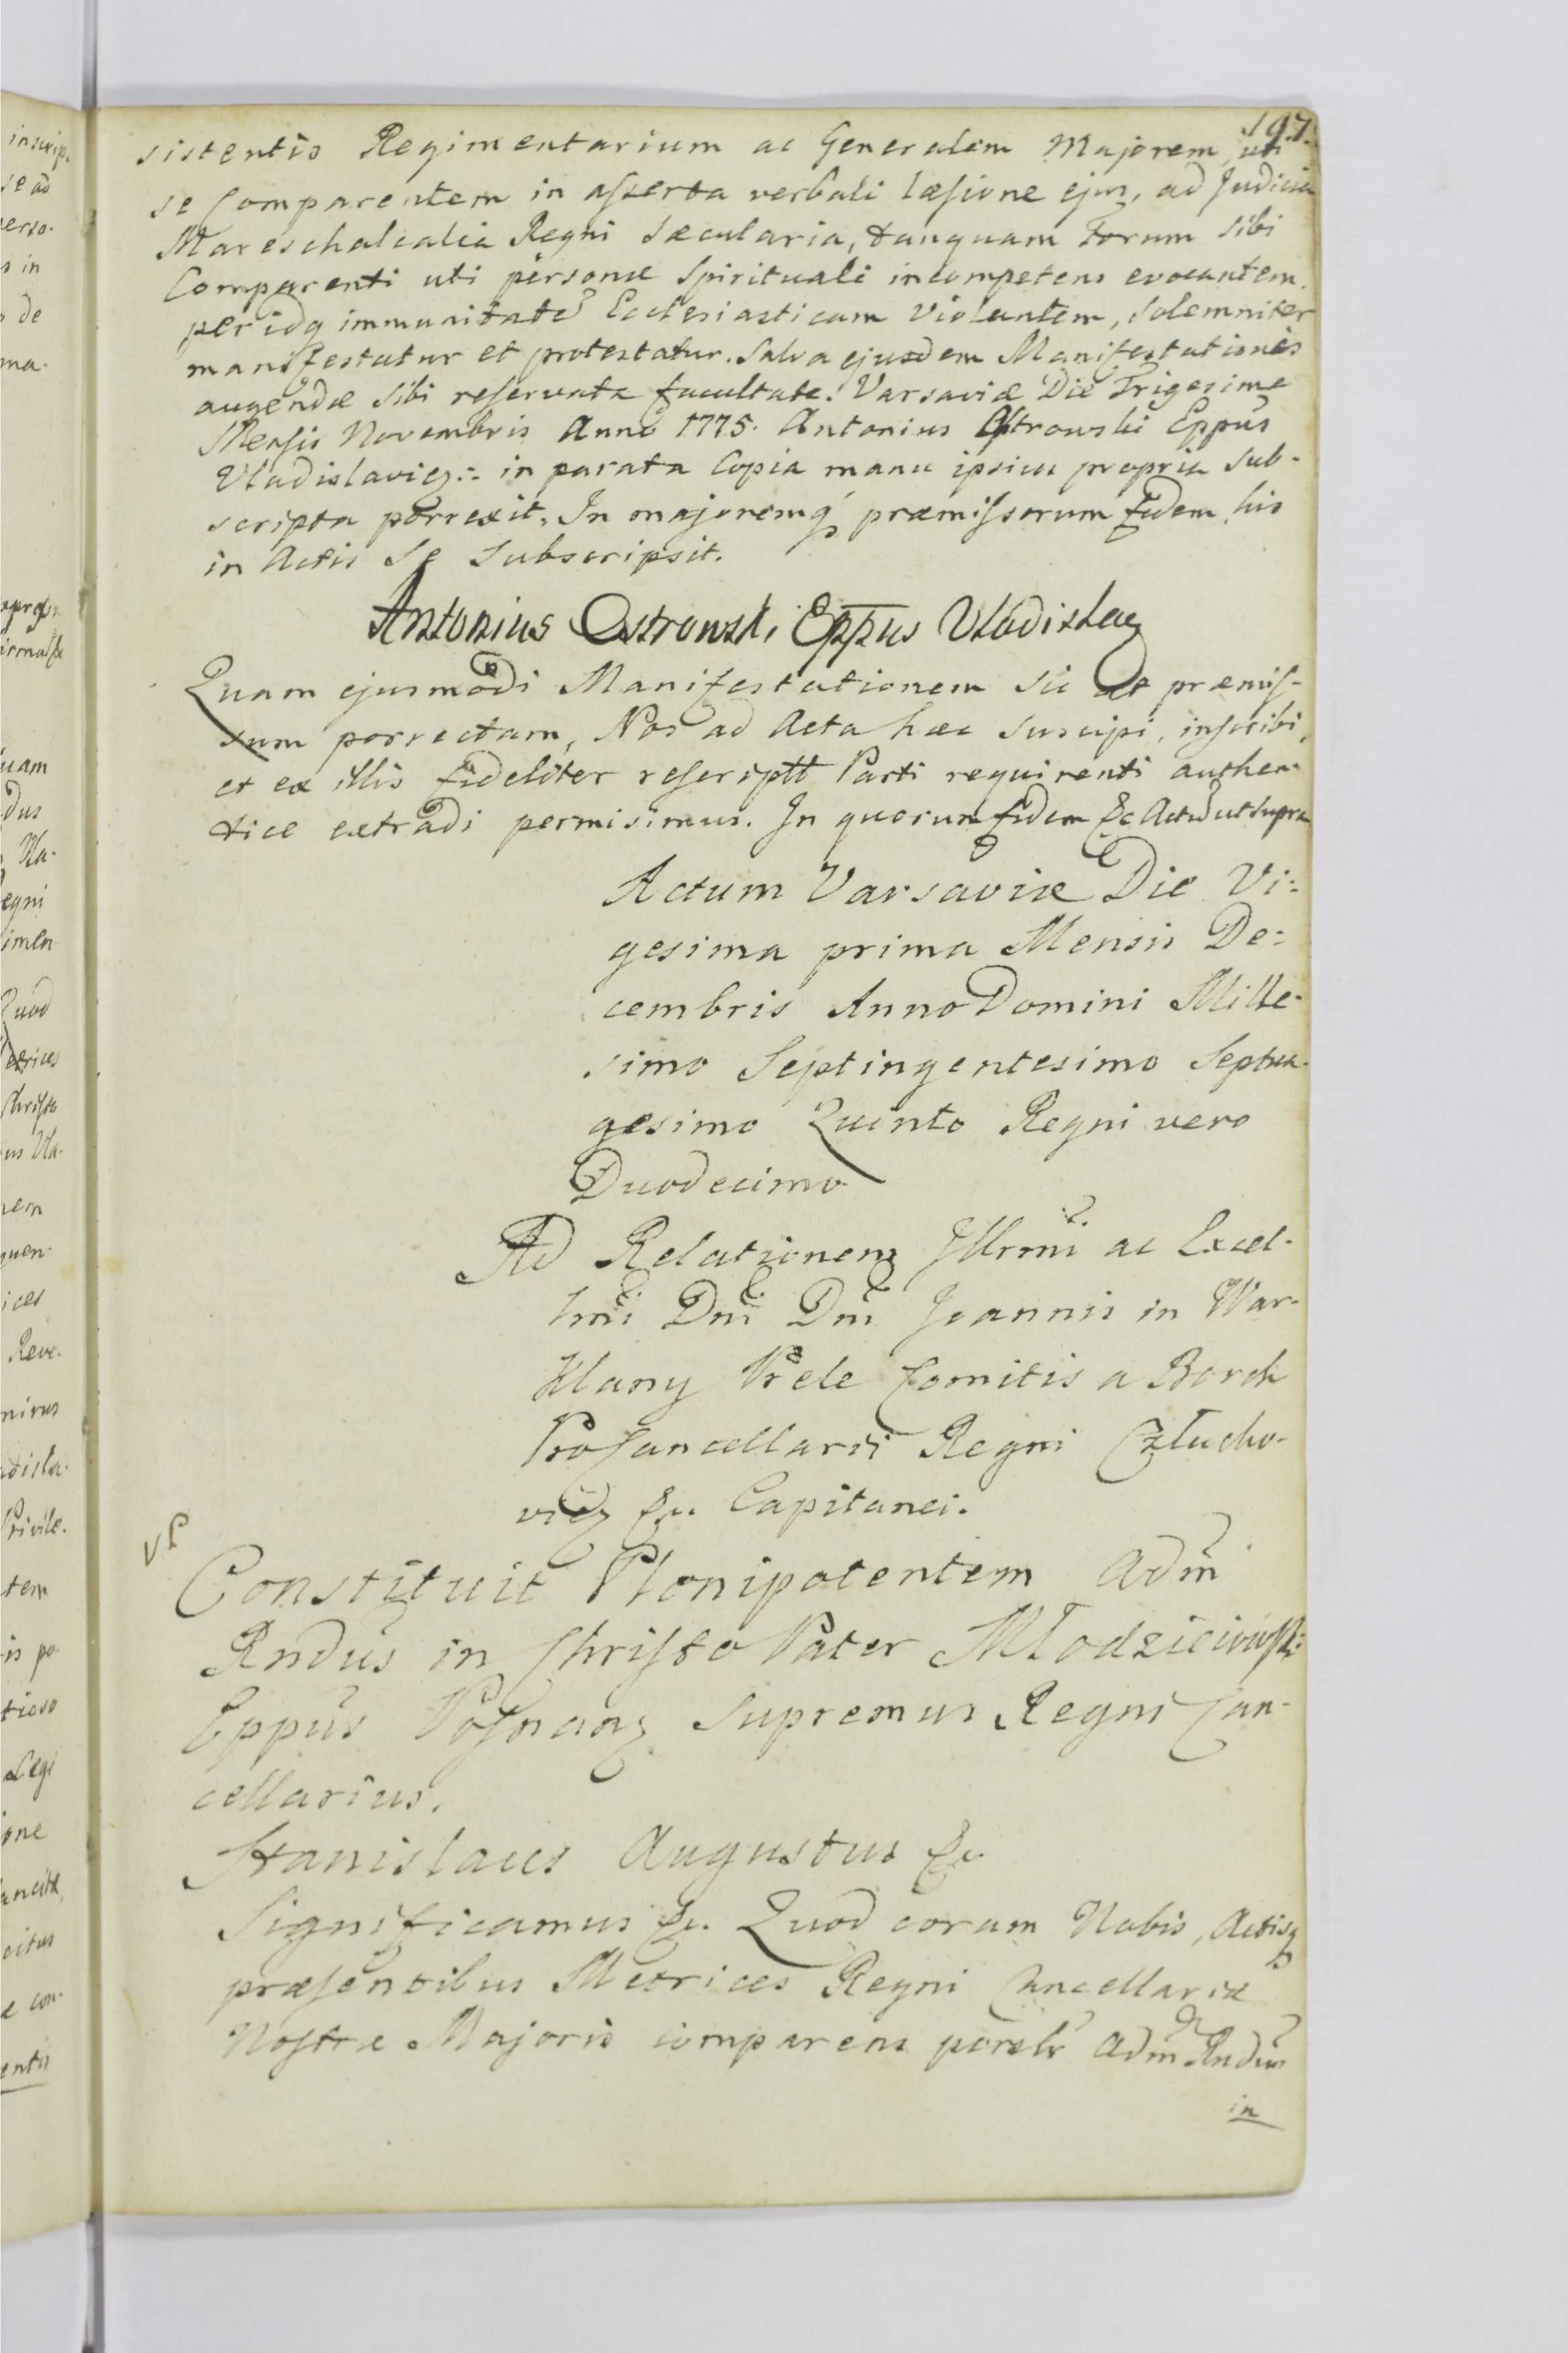 197.
sistentis Regimentarium ac Generalem Majorem, uti
se Comparentem in asserta verbali læsione ejus, ad Judicia
Mareschalcalia Regni Sæcularia, tanquam Forum sibi
Comparenti uti personæ Spirituali incompetens evocantem.
per idq immunitate Ecclesiasticam Violantem, solemniter
manifestatur et protestatur. Salva ejusdem Manifestationis
augendæ sibi reservata facultate. Varsaviæ Die Trigesima
Mensis Novembris Anno 1775. Antonius Ostrowski Eppus
Vladislavien:- in parata Copia manu ipsius propria sub-
scripta porrexit. In majoremq præmissorum fidem, his
in Actis Se Subscripsit.
Antonius Ostrowski Eppus Vladislav
Quam ejusmodi Manifestationem sic ut præmis-
sum porrectam, Nos ad Acta hæc suscipi, inscribi,
et ex illis fideliter rescriptt Parti requirenti authen-
tice extradi permisimus. In quorum fidem &c Actu ut supra
Actum Varsaviæ Die Vi-
gesima prima Mensis De-
cembris Anno Domini Mille-
simo Septingentesimo Septua-
gesimo Quinto Regni vero
Duodecimo
Ad Relationem Illrmi ac Excel-
lmi Dni Dni Joannis in War-
klany Prele Comitis a Borch
ProCancellarii Regni Człucho-
vien &c. Capitanei.
VP
Constituit Plenipotentem Adm
Rndus in Christo Pater Młodzieiowski
Eppus Posnang Supremus Regni Can-
cellarius.
Stanislaus Augustus &c
Significamus &c. Quod coram Nobis, Actisq
præsentibus Metrices Regni Cancellariæ
Nostræ Majoris comparens psnlr Adm Rndus
in